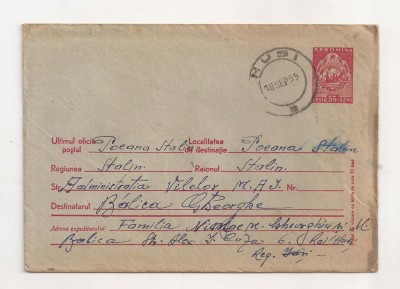 HUSI
18 SEP 59
R.P.ROMINA
55 BANI
Ultimul oficiu poștal Poeana Stalin Localitatea de destinație Poeana Stalin
Regiunea Stalin. Raionul Stalin.
Str. Administratia Vilelor M.A.I. Nr.
Destinatarul Balica Gheorghe
Adresa expeditorului Familia M.
Balica Gh. Alex. I. Cuza 6.
Reg. Iași